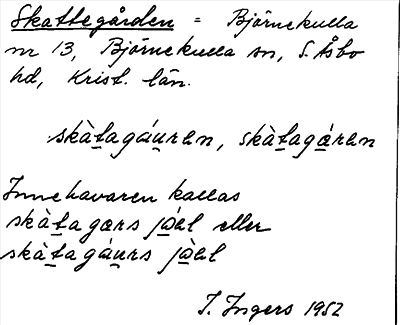 Skattegården = Björnekulla
nr 13, Björnekulla sn, S. Åsbo
hd, Krist. län.
skàt̲agáu̲ren, skàt̲agæ̲ren
Innehavaren kallas
skàt̲agærs jo̲el eller
skàt̲agáu̲rs jo̲el
I. Ingers 1952